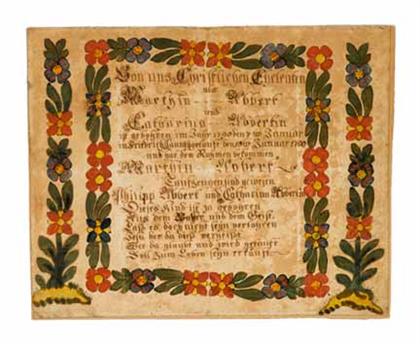 Von uns Christlichen Eheleuten
als
Marthin Abbert
und
Catharina Abbertin
ist gebohren im Jahr 1790 den Januar
Januar 1790
und hat den Nahmen bekommen
Marthin Abbert
Taufzeugen sind gewesen
Philipp Abbert und Catharina Abbertin
Dieses Kind ist zu gebohren
Aus dem Wasser und dem Geist
Laß es doch nicht seyn verlohren
Wer da glaubt und wird getauft
Soll zum Leben seyn erkauft